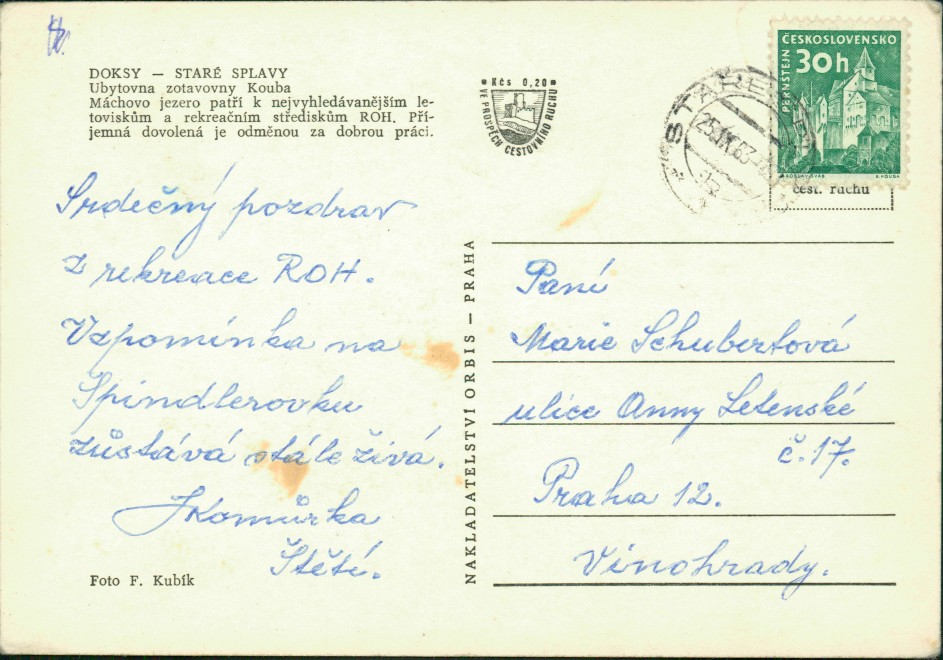 DOKSY — STARÉ SPLAVY
Ubytovna zotavovny Kouba
Máchovo jezero patří k nejvyhledávanějším le-
toviskům a rekreačním střediskům ROH. Pří-
jemná dovolená je odměnou za dobrou práci.
Kčs 0,20
VE PROSPĚCH CESTOVNÍHO RUCHU
ČESKOSLOVENSKO
30h
PERNŠTEJN
STARÉ
cest. ruchu
Srdečný pozdrav
z rekreace ROH.
Vzpomínka na
Špindlerovku
zůstává stále živá.
JKomůrka
Štětí.
Foto F. Kubík
NAKLADATELSTVÍ ORBIS — PRAHA
Paní
Marie Schubertová
ulice Anny Letenské
č. 17.
Praha 12.
Vinohrady.